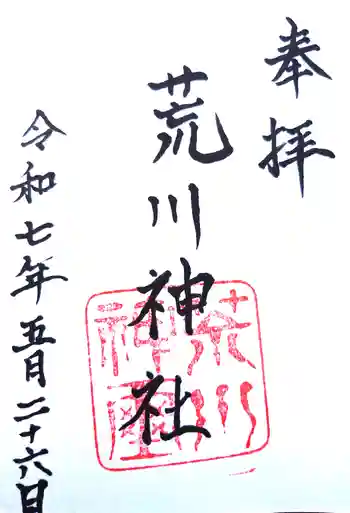 奉拝
荒川神社
令和七年五月二十六日